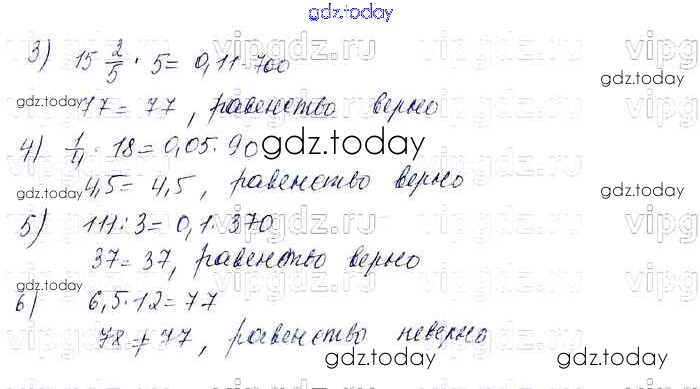 gdz.today
3) 15 2/5 · 5 = 0,11·700
77 = 77, равенство верно
4) 1/4 · 18 = 0,05·90
4,5 = 4,5, равенство верно
5) 111:3 = 0,1·370
37 = 37, равенство верно
6) 6,5·12 = 77
78 ≠ 77, равенство неверно
vipgdz.ru
gdz.today
gdz.today
gdz.today
gdz.today
gdz.today
gdz.today
gdz.today
gdz.today